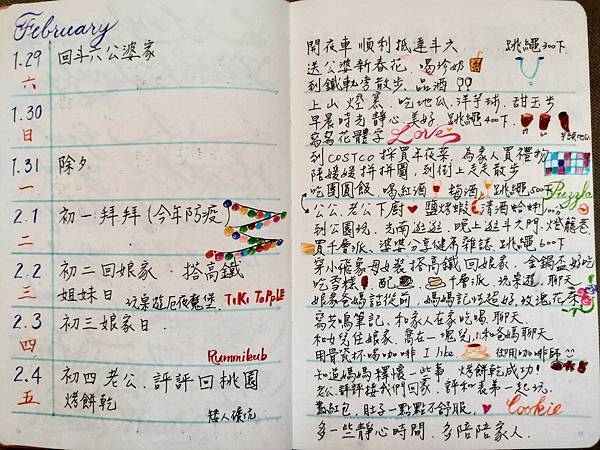 February
1.29 回斗六公婆家
六
1.30
日
1.31 除夕
一
2.1 初一拜拜(今年防疫)
二
2.2 初二回娘家.搭高鐵
三 姐妹日 玩桌遊尼夜魔堡 TiKi ToPpLE
2.3 初三娘家日.
四 Rummikub
2.4 初四老公.評評回桃園
五 烤餅乾 矮人礦坑
開夜車順利抵達斗六 跳繩300下
送公婆新春花.喝珍奶
到鐵軌旁散步.品酒
上山燈展.吃地瓜.洋芋球.甜玉米
早晨時光靜心美好.跳繩400下.
寫寫花體字 Love
到COSTCO採買年夜菜,為家人買禮物
陪媛媛拼拼圖,到街上走走散步
吃團圓飯.喝紅酒 梅酒.跳繩500下 Puzzle
公公.老公下廚 鹽烤蝦 清酒蛤蜊
到公園玩.光南逛逛.晚上逛斗六門.燈籠巷
買千層派.婆婆分享健康雜誌.跳繩600下
穿小飛象母女裝搭高鐵回娘家,金鍋盃好吃
吃香檳 配 千層派.玩桌遊.聊天
娘家爸媽話從前,媽媽記性超好,玫瑰花茶
寫共鳴筆記.和家人在家吃喝.聊天
和女兒住娘家.窩在一塊兒,和爸媽聊天
用骨瓷杯喝咖啡 I like 御用咖啡師
知道媽媽釋懷一些事 烤餅乾成功!
老公.評評接我們回家.評和表弟一起玩.
包紅包,肚子一點點不舒服. Cookie
多一些靜心時間.多陪陪家人.